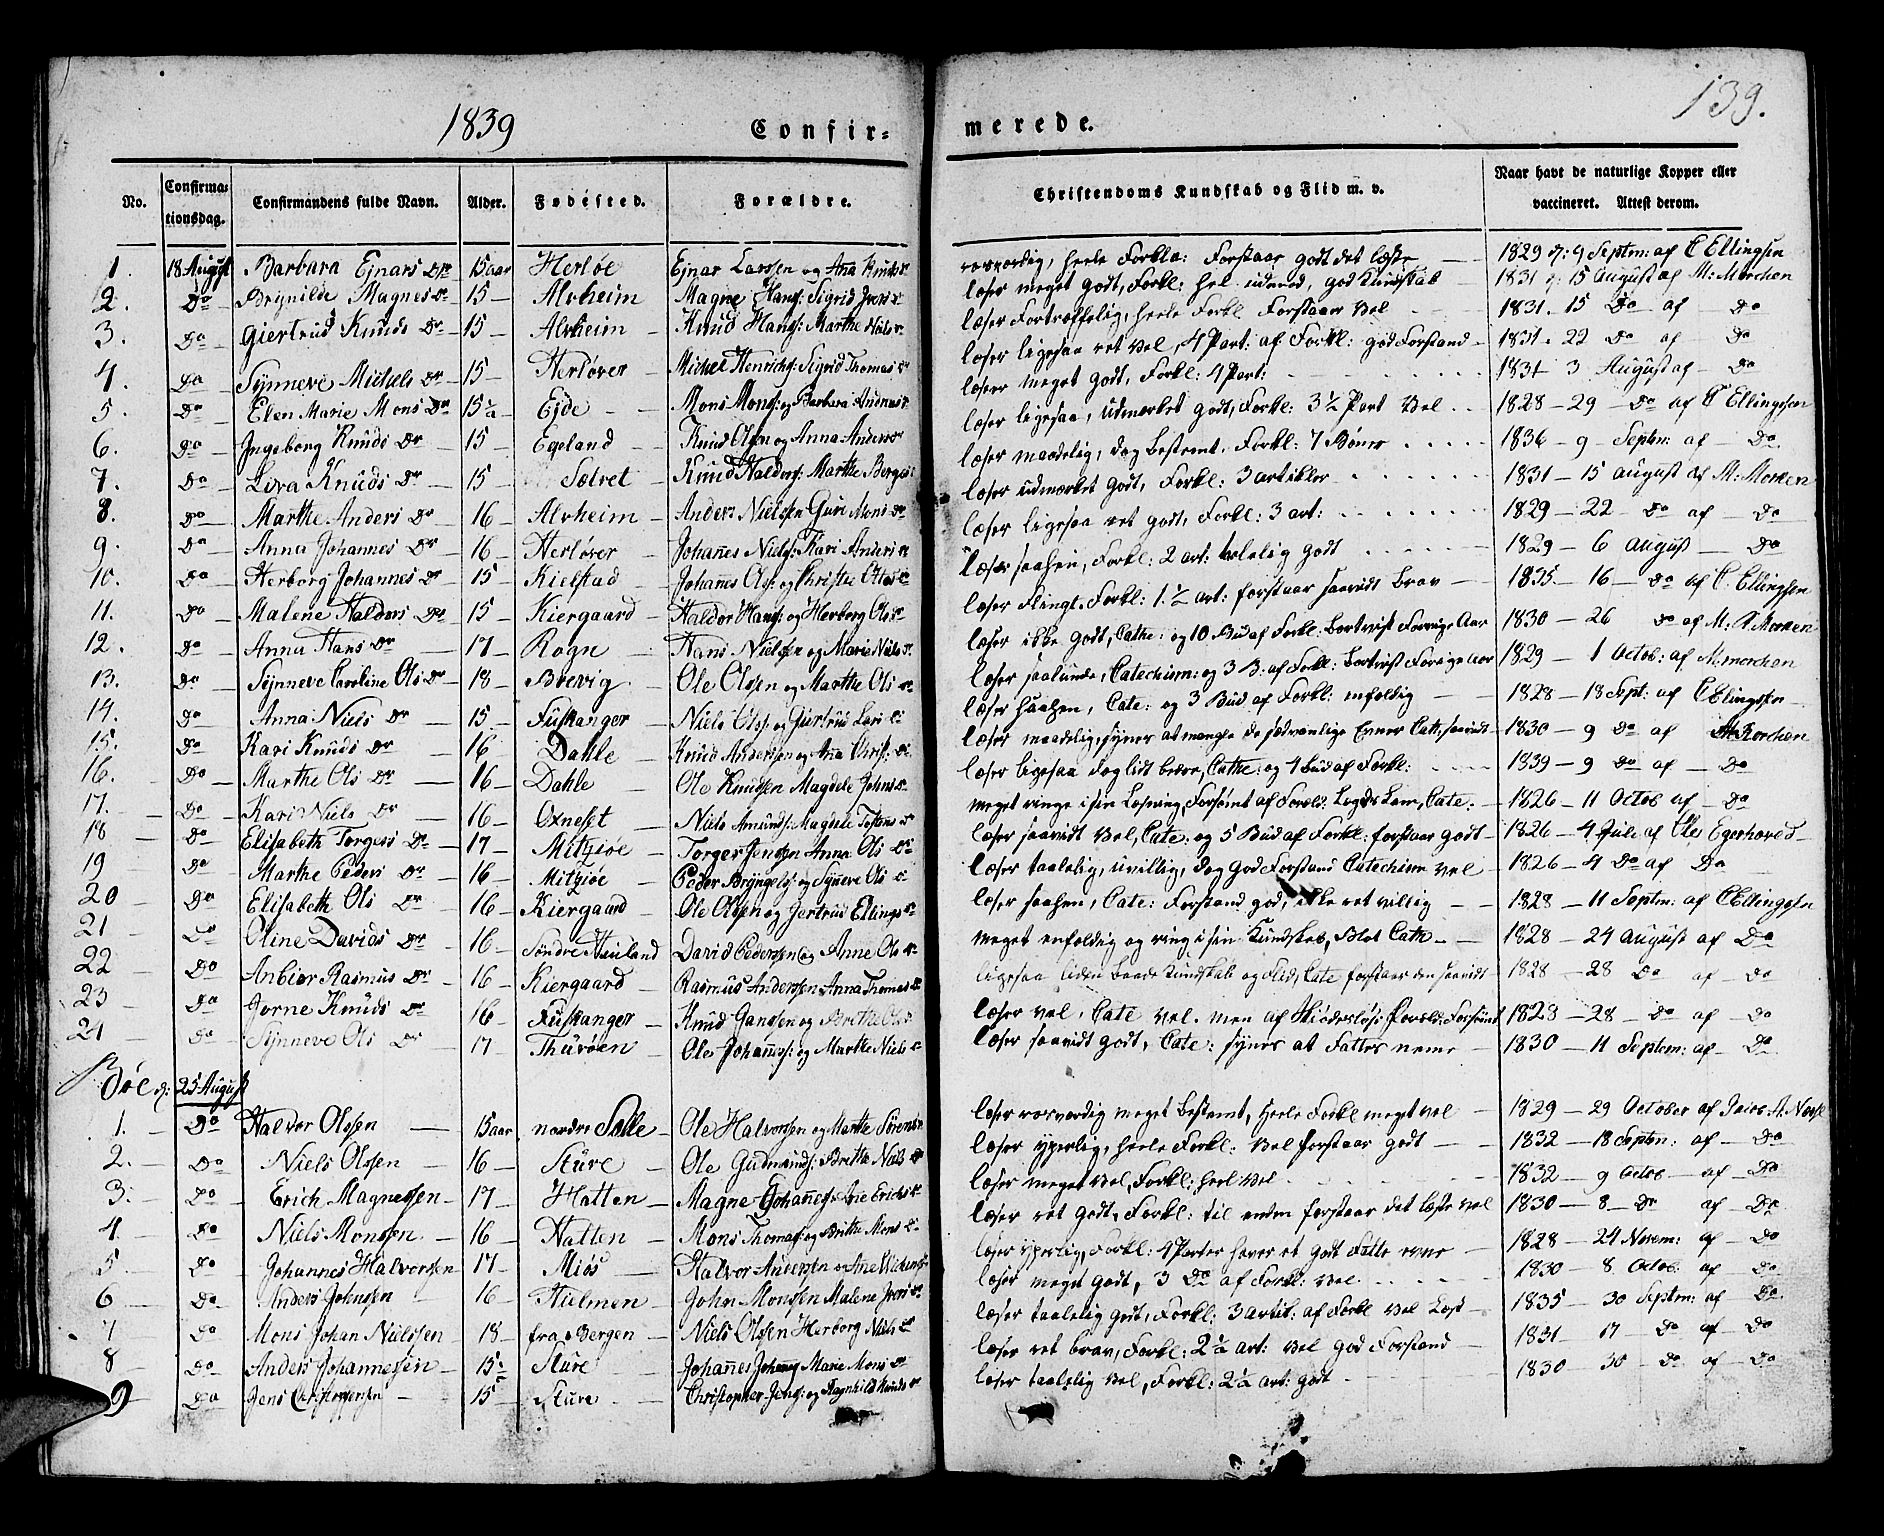 139.
1839 Confirmerede.
No. Confirmationsdag. Confirmandens fulde Navn. Alder. Fødested. Forældre. Christendoms Kundskab og Flid m. v. Naar havt de naturlige Kopper eller vaccineret. Attest derom.
1. 18 August Barbara Ejnars Dr 15 aar Herløe Ejnar Larssen og Ana Knuds Dr heele Forkla: Forstaar godt det læste 1829 d: 9 Septm: af C Ellingsen
2. Do Brynilde Magnes Dr 15 Alvheim Magne Hans: Sigrid Ivers Dr læser meget godt, Forkl: hel udmed, god Kundskab 1831 d: 15 August af M: Morchen
3. Do Giertrud Knuds Dr 15 Alvheim Knud Hans: Marthe Niels Dr læser Fortræffelig, heele Forkl Forstaar vel 1831. 15 Do af Do
4. Do Synneve Michels Dr 15 Herløver Michel Henrichs: Sigrid Thomas Dr læser ligesaa ret vel, 4 Part: af Forkl: god Forstand 1831. 22 Do af Do
5. Do Elen Marie Mons Dr 15 ½ Ejde Mons Mons: og Barbara Anders Dr læser meget godt, Forkl: 4 Part: 1831 3 August af Do
6. Do Ingeborg Knuds Dr 15 Egeland Knud Olsen og Anna Anders Dr læser ligesaa, udmerket godt, Forkl: 3 ½ Part vel 1828 29 Do af C Ellingsen
7. Do Liva Knuds Dr 15 Sætret Knud Haldors: Marthe Børges læser maadelig, dog bestemt, Forkl: 7 Bønner 1836 9 Septm: af Do
8. Do Marthe Anders Dr 16 Alvheim Anders Nielsen Guri Mons Dr læser udmærket godt, Forkl: 3 artikler 1831 15 August af M: Morken
9. Do Anna Johannes Dr 16 Herløver Johanes Niels: Kari Anders Dr læser ligesaa ret godt, Forkl: 3 art: 1829 22 Do af Do
10. Do Herborg Johannes Dr 15 Kielstad Johanes Ols: og Christie Ols Dr læser saahen, Forkl: 2 art: godt 1829 6 August Do
11. Do Malene Haldors Dr 15 Kiergaard Haldor Hans: og Herborg Ols Dr læser Flingt, Forkl: 1. ½ art: forstaar saavidt brav 1835 16 Do af C. Ellingsen
12. Do Anna Hans Dr 17 Rogn Hans Nielsen og Marie Niels Dr læser ikke godt, Cathe: og 10 Bud af Forkl: bortvist Forrige Aar 1830 26 Do af M: R Morken
13. Do Synneve Caroline Ols Dr 18 Brevig Ole Olssen og Marthe Ols Dr læser saalunde, Catechism: og 3 B. af Forkl: bortvist Forrige aar 1829 1 Octob: af M: morchen
14. Do Anna Niels Dr 15 Fuskanger Niels Olss: og Giertrud Lars Dr læser saahen, Cate: og 3 Bud af Forkl: enfoldig 1828 18 Sept: af C Ellingsen
15. Do Kari Knuds Dr 16 Dahle Knud Anderssen og Ana Chris: Dr læser maadelig, synes at mangle de sædvanlige Evner Cath, saavidt 1830 9 Do af M: Korchen
16. Do Marthe Ols Dr 16 Dahle Ole Knudsen Magdele Johns Dr læser ligesaa dog lidt bedre, Cathe: og 4 Bud af Forkl: 1839 9 Do af Do
17. Do Kari Niels Dr 16 Oxneset Niels Amunds: Magdele Dr meget ringe i sin Læsning, Forsømt af Foreld: Cate: 1826 11 Octob af Do
18 Do Elisabeth Torgers Dr 17 Mitziøe Torger Jenssen Anna Ols Dr læser saavidt vel, Cate: og 5 Bud af Forkl: forstaar godt 1826 4 Jule af Ole Egerhoved
19 Do Marthe Peders Dr 16 Mitziøe Peder Bryngels: og Syneve Ols Dr læser taalelig, uvillig, dog god Forstand Catechism vel 1826 4 Do af Do
20 Do Elisabeth Ols Dr 16 Kiergaard Ole Olsen og Jertrud Ellings Dr læser saahen, Cate: Forstand god, ikke ret villig 1828 11 Septm: af C Ellingsen
21 Do Oline Davids Dr 16 Søndre Hauland David Pederssen og Anne Ols Dr meget enfoldig og ring i sin Kundskab, blot Cath 1828 24 August af Do
22 Do Anbiør Rasmus Dr 16 Kiergaard Rasmus Anderssen Anna Thomas Dr ligesaa liden baade Kundskab og Flid, Cate forstaar den saavidt 1828 28 Do af Do
23 Do Jorne Knuds Dr 16 Fuskanger Knud Janssen og Brithe Ols Dr læser vel, Cate vel. men af Foreld: Forsømt 1823 28 Do af Do
24 Do Synneve Ols Dr 17 Thurøen Ole Johanns: og Marthe Niels Dr læser saavidt godt, Cate: synes at Fattes neme 1830 11 Septem: af Do
Bøe d: 25 August
1. Do Halvor Olssen 15 aar nordre Solle Ole Halvorssen og Marthe Sørens Dr læser meget bestemt, heele Forkl meget vel 1829 29 October af
2. Do Niels Olssen 16 Sture Ole Gudmunds: Brithe Niels Dr læser yperlig, heele Forkl: vel forstaar godt 1832 18 Septm: af Do
3. Do Erich Magnessen 17 Hatten Magne Johanes: Ane Erichs Dr læser meget vel, Forkl: heel vel 1832 9 Octob af Do
4 Do Niels Monssen 16 Hatten Mons Thomas: og Brithe Mons Dr læser ret godt, Forkl: til enden forstaar det læste vel 1830 8 Do af Do
5 Do Johannes Halvorssen 17 Miøs Halvor Anderssen og Ane læser yperlig, Forkl: 4 Parter haver et godt Fatte evne 1828 24 Novem: af Do
6 Do Anders Johnssen 16 Hielmen John Monssen Malene Ivers Dr læser meget godt, 3 Do af Forkl: vel 1830 8 Octob: af Do
7 Do Mons Johan Nielssen 18 fra Bergen Niels Olssen Herborg Niels Dr læser taalelig godt, Forkl: 3 artik: af Forkl vel læst 1835 30 Septm: af Do
8 Do Anders Johannessen 15 ½ Sture Johanes Johans Marie Mons Dr læser ret brav, Forkl: 2 ½ art: vel god Forstand 1831 17 Do af Do
9 Do Jens Christophersen 15 Sture Christopher Jens: og Ragnhild Knuds Dr læser taalelig vel, Forkl: 2 ½ art: godt 1830 30 Do af Do